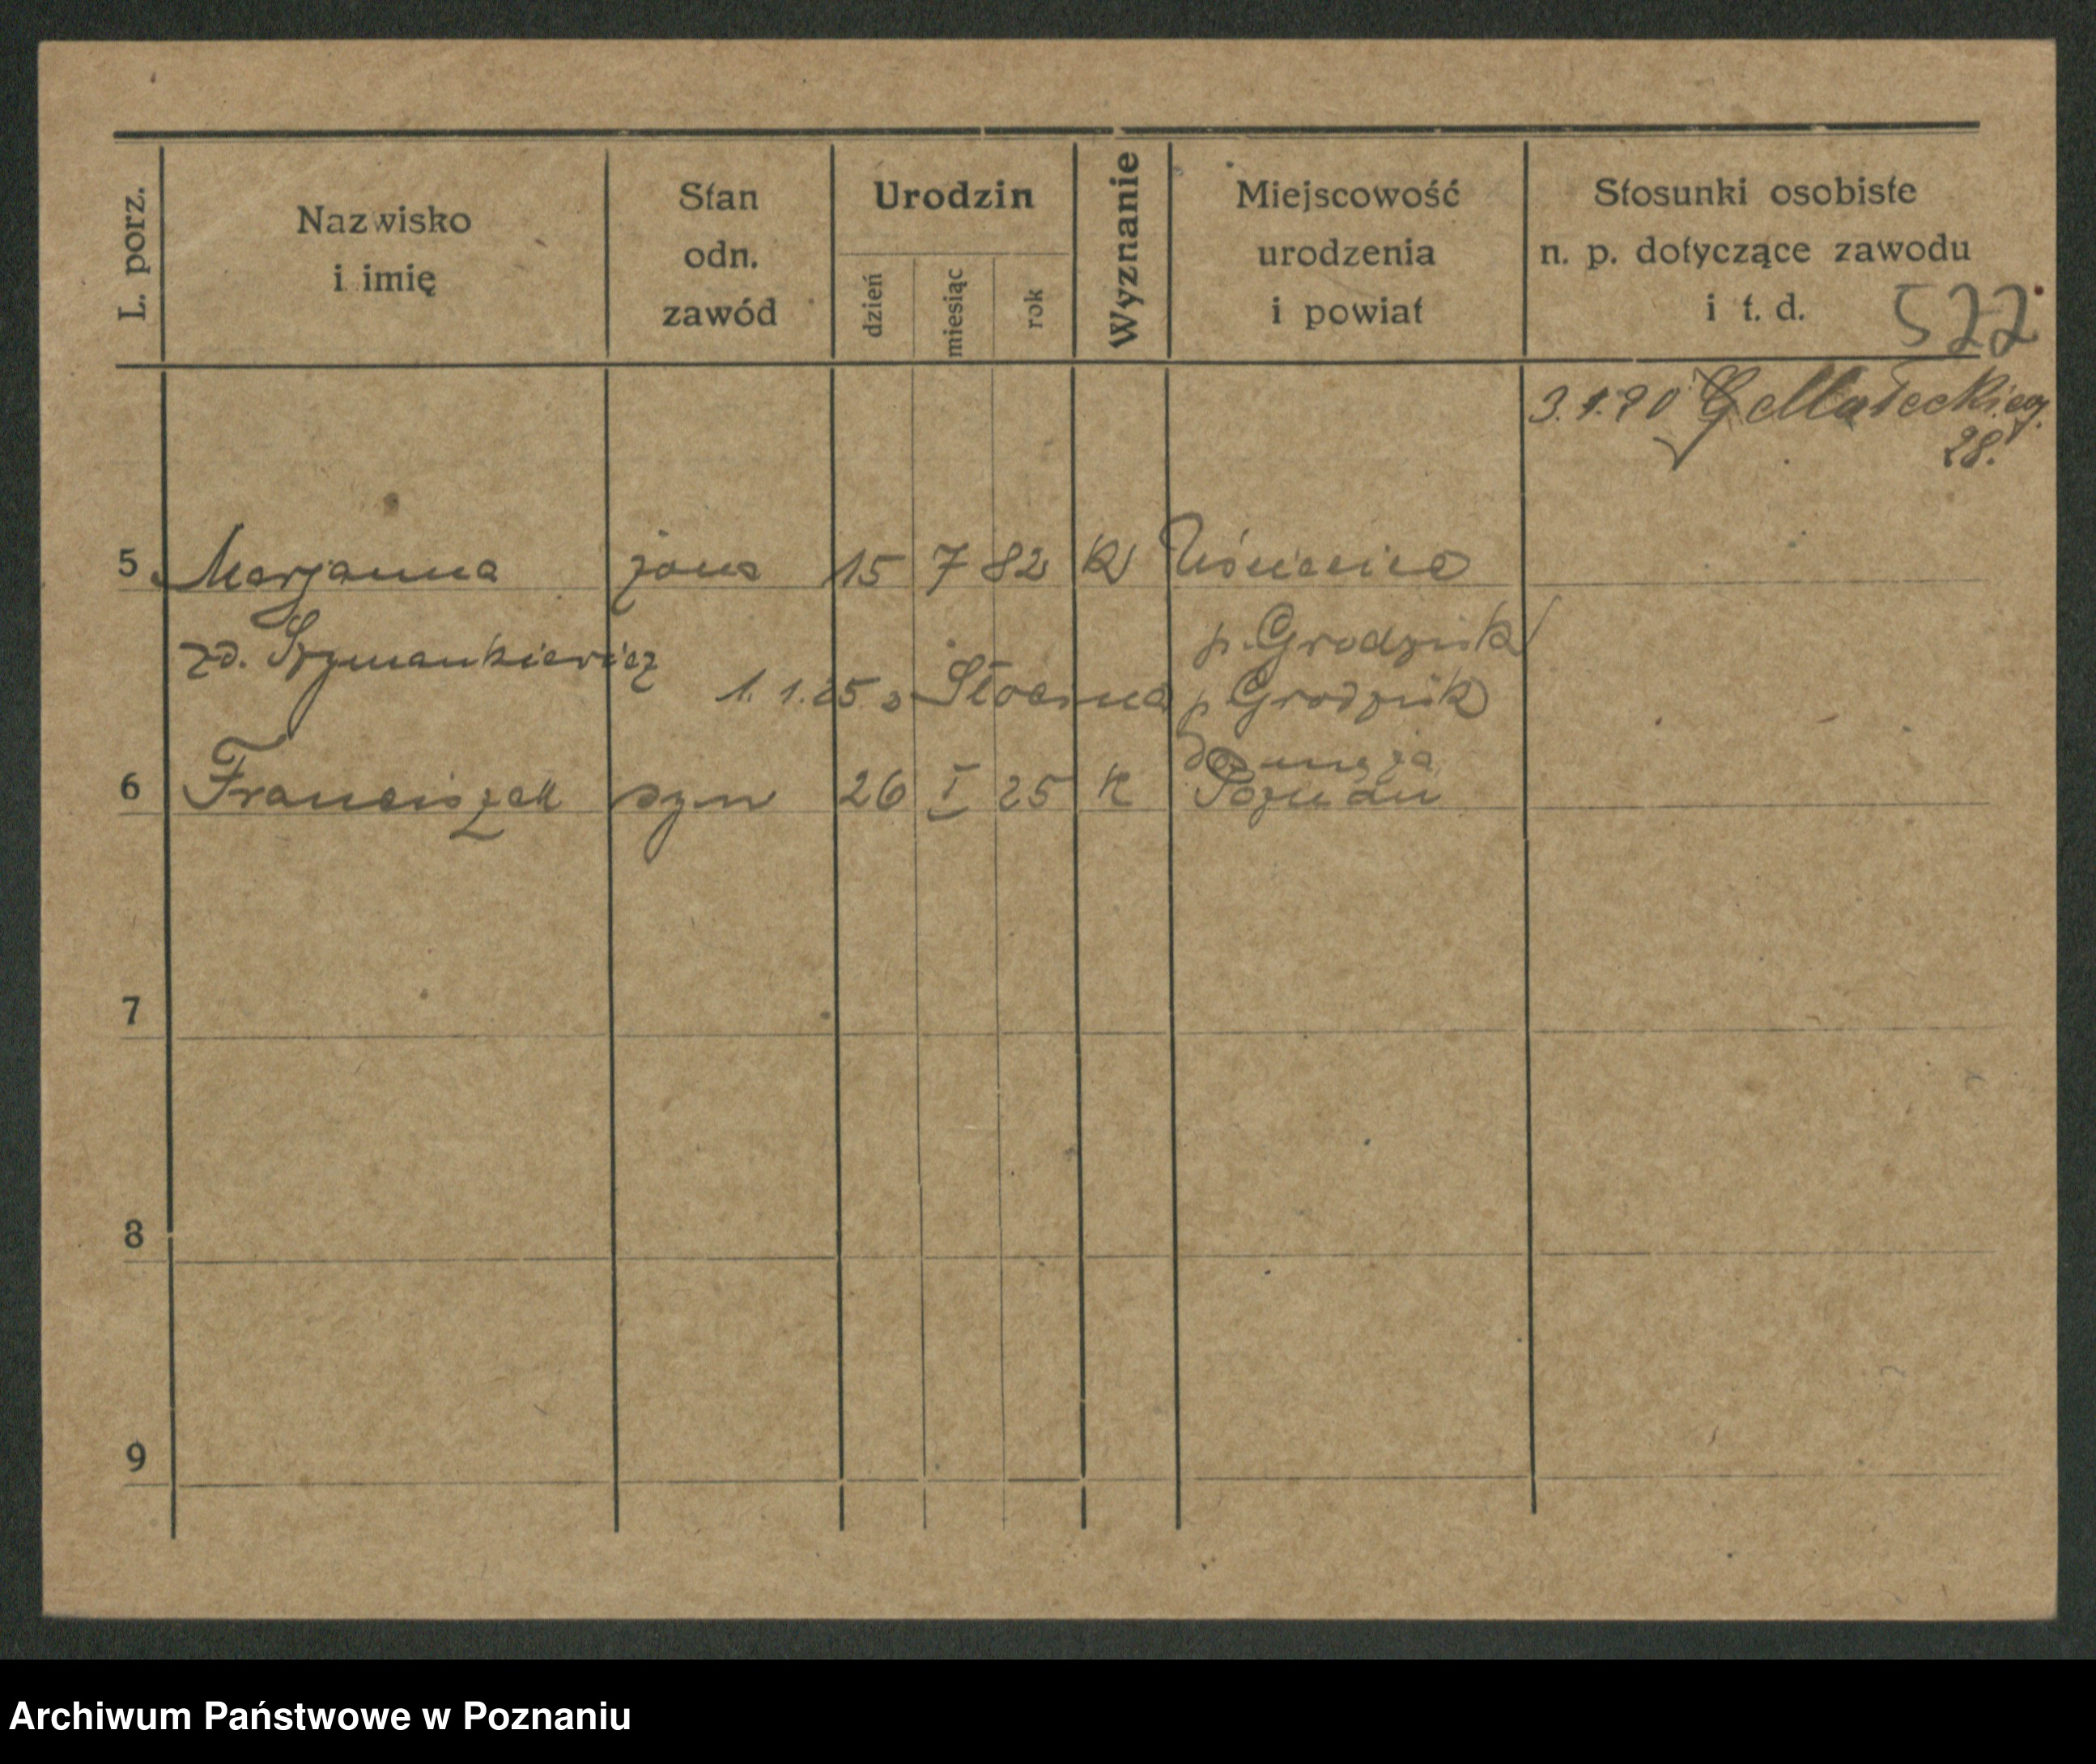 L. porz.
Nazwisko
i imię
Stan
odn.
zawód
Urodzin
dzień
miesiąc
rok
Wyznanie
Miejscowość
urodzenia
i powiat
Stosunki osobiste
n. p. dotyczące zawodu
i t. d.
522
Małeckieg.
28.
5 Marjanna żona 15 7 82 K
zd. Szymankiewicz p. Grodzisk
1. 1. 25 z Słocina p Grodzisk
do męża
6 Franciszek syn 26 I 25 K Poznań
7
8
9
Archiwum Państwowe w Poznaniu